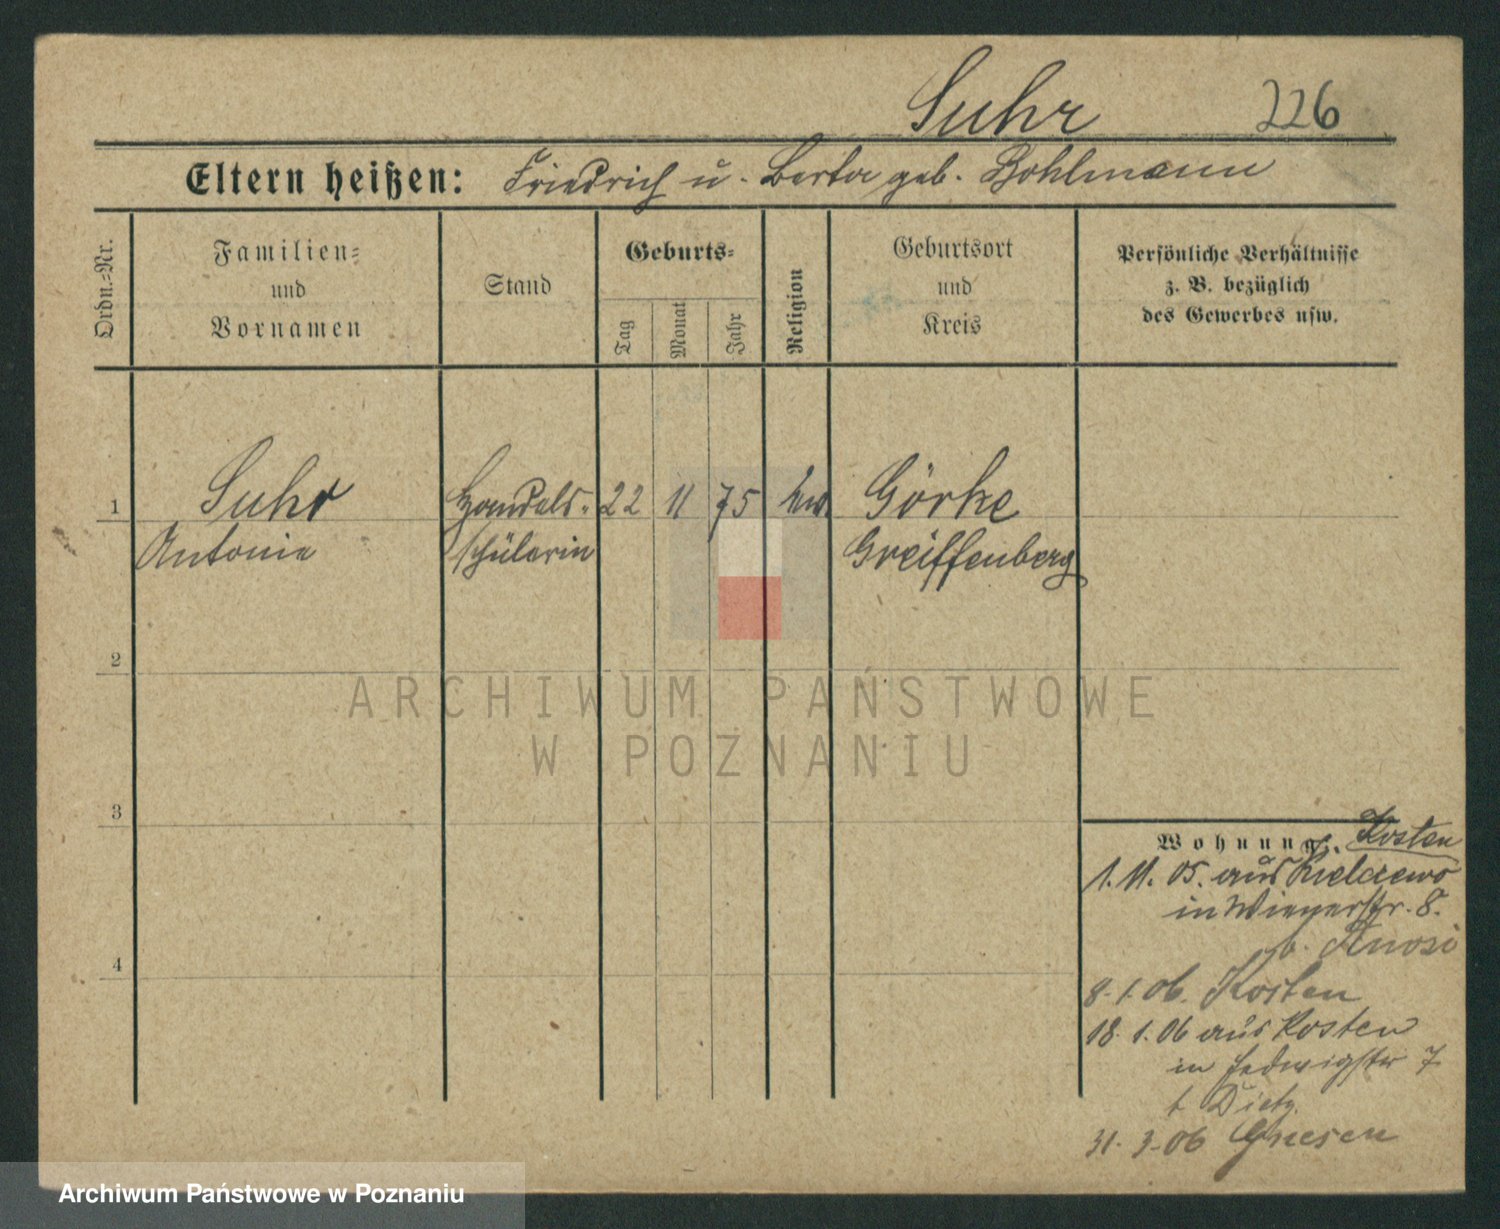 Suhr 226
Eltern heißen: Friedrich u. Berta geb. Bohlmann
Ordn.=Nr.
Familien=
und
Vornamen
Stand
Geburts=
Tag
Monat
Jahr
Religion
Geburtsort
und
Kreis
Persönliche Verhältnisse
z. B. bezüglich
des Gewerbes usw.
1 Suhr Handels- 22 11 75 ev. Görke
Antonie schülerin Greiffenberg
2
ARCHIWUM PAŃSTWOWE
W POZNANIU
3
Wohnung: Kosten
1. 11. 05. aus
in Wienerstr. 8.
b.
4
8. 1. 06. Kosten
18. 1. 06 aus Kosten
in Hedwigstr 7
Dietz
31. 3. 06 Gnesen
Archiwum Państwowe w Poznaniu